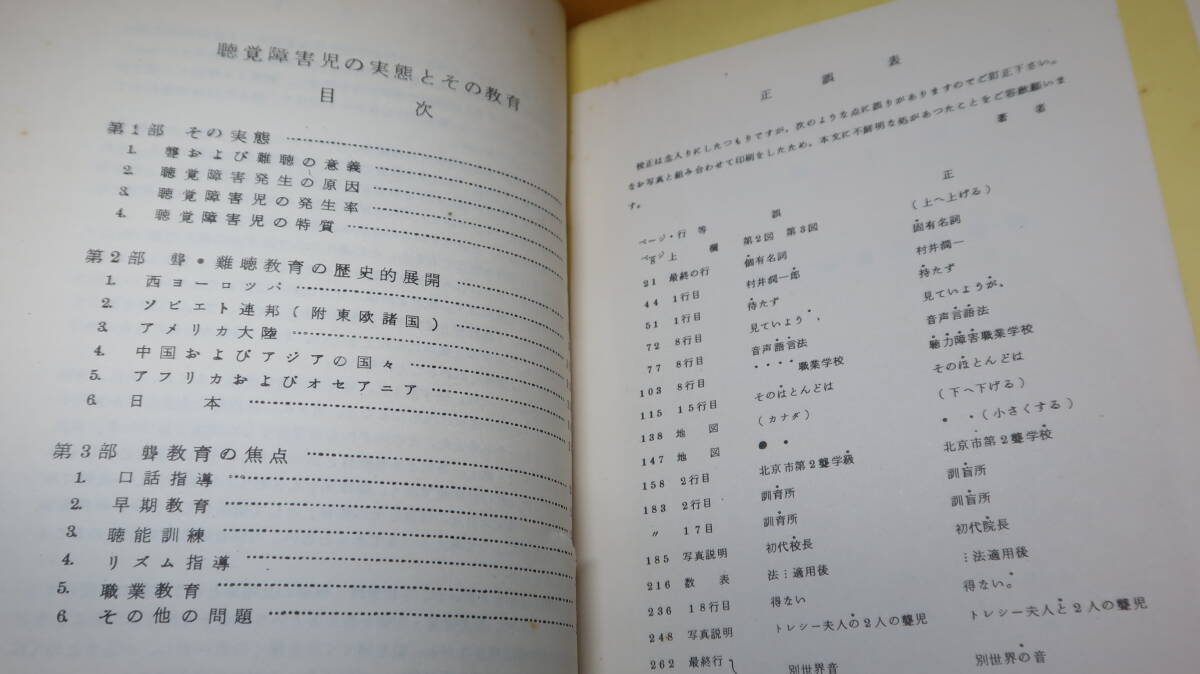 聴覚障害児の実態とその教育
目　次
第1部 その実態
1. 聾および難聴の意義
2. 聴覚障害発生の原因
3. 聴覚障害児の発生率
4. 聴覚障害児の特質
第2部 聾・難聴教育の歴史的展開
1. 西ヨーロッパ
2. ソビエト連邦(附東欧諸国)
3. アメリカ大陸
4. 中国およびアジアの国々
5. アフリカおよびオセアニア
6. 日　本
第3部 聾教育の焦点
1. 口話指導
2. 早期教育
3. 聴能訓練
4. リズム指導
5. 職業教育
6. その他の問題
正　誤　表
校正は念入りにしたつもりですが、次のような点に誤りがありますのでご訂正下さい。
なお写真と組み合わせて印刷をしたため、本文に不鮮明な処があつたことをご容赦願いま
す。　著　者
ページ・行 等　誤　正
ページ 8 上 欄　第2図 第3図　(上へ上げる)
21 最終の行　個有名詞　固有名詞
44 1行目　村井潤一郎　村井潤一
51 1行目　侍たず　持たず
72 8行目　見ていよう・、　見ていようが、
77 8行目　音声語言法　音声言語法
103 8行目　・・・・職業学校　聴力障害職業学校
115 15行目　そのはとんどは　そのほとんどは
138 地　図　(カナダ)　(下へ下げる)
147 地　図　●・　・・(小さくする)
158 2行目　北京市第2聾学級　北京市第2聾学校
183 2行目　訓育所　訓盲所
〃 17目　訓育所　訓盲所
185 写真説明　初代校長　初代院長
216 数　表　法…適用後　…法適用後
236 18行目　得ない　得ない。
248 写真説明　トレシー夫人の2人の聾児　トレシー夫人と2人の聾児
262 最終行　別世界音　別世界の音